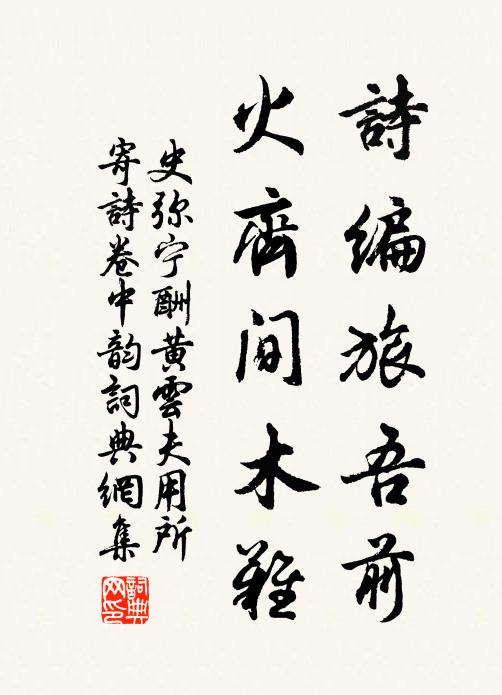 詩編旅吾前
火齊間木難
史弥宁酬黄雲夫用所
寄詩卷中韵詞典網集
詞典网印